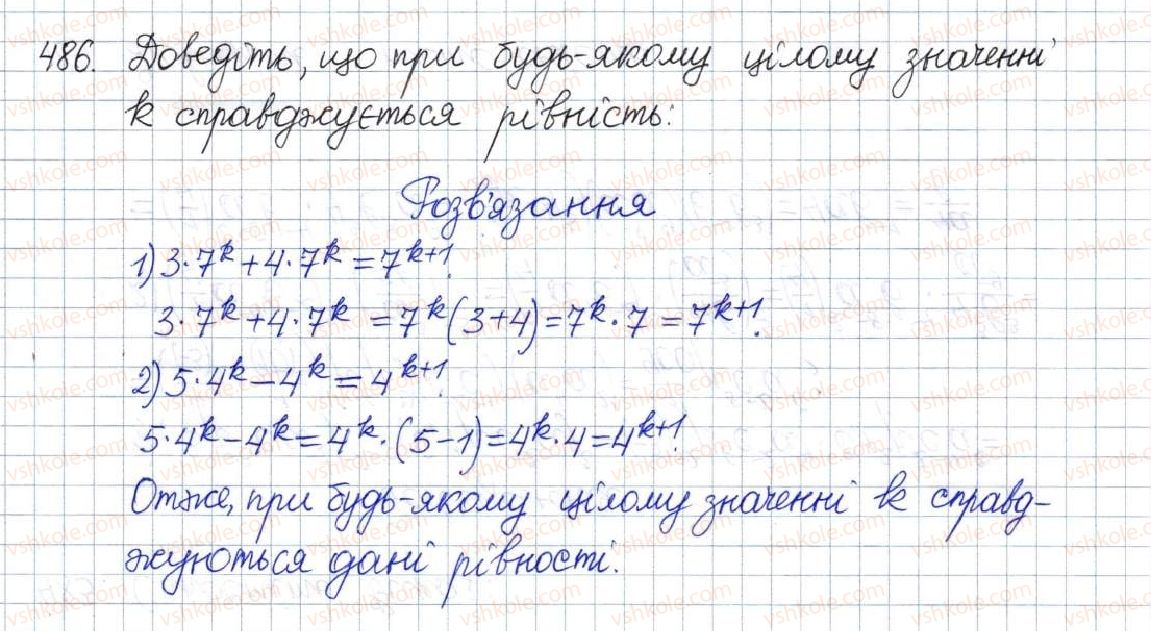 486. Доведіть, що при будь-якому цілому значенні
k справджується рівність:
Розв'язання
1) 3·7^k + 4·7^k = 7^{k+1}.
3·7^k + 4·7^k = 7^k (3+4) = 7^k · 7 = 7^{k+1}.
2) 5·4^k - 4^k = 4^{k+1}.
5·4^k - 4^k = 4^k · (5-1) = 4^k · 4 = 4^{k+1}.
Отже, при будь-якому цілому значенні k справд-
жуються дані рівності.